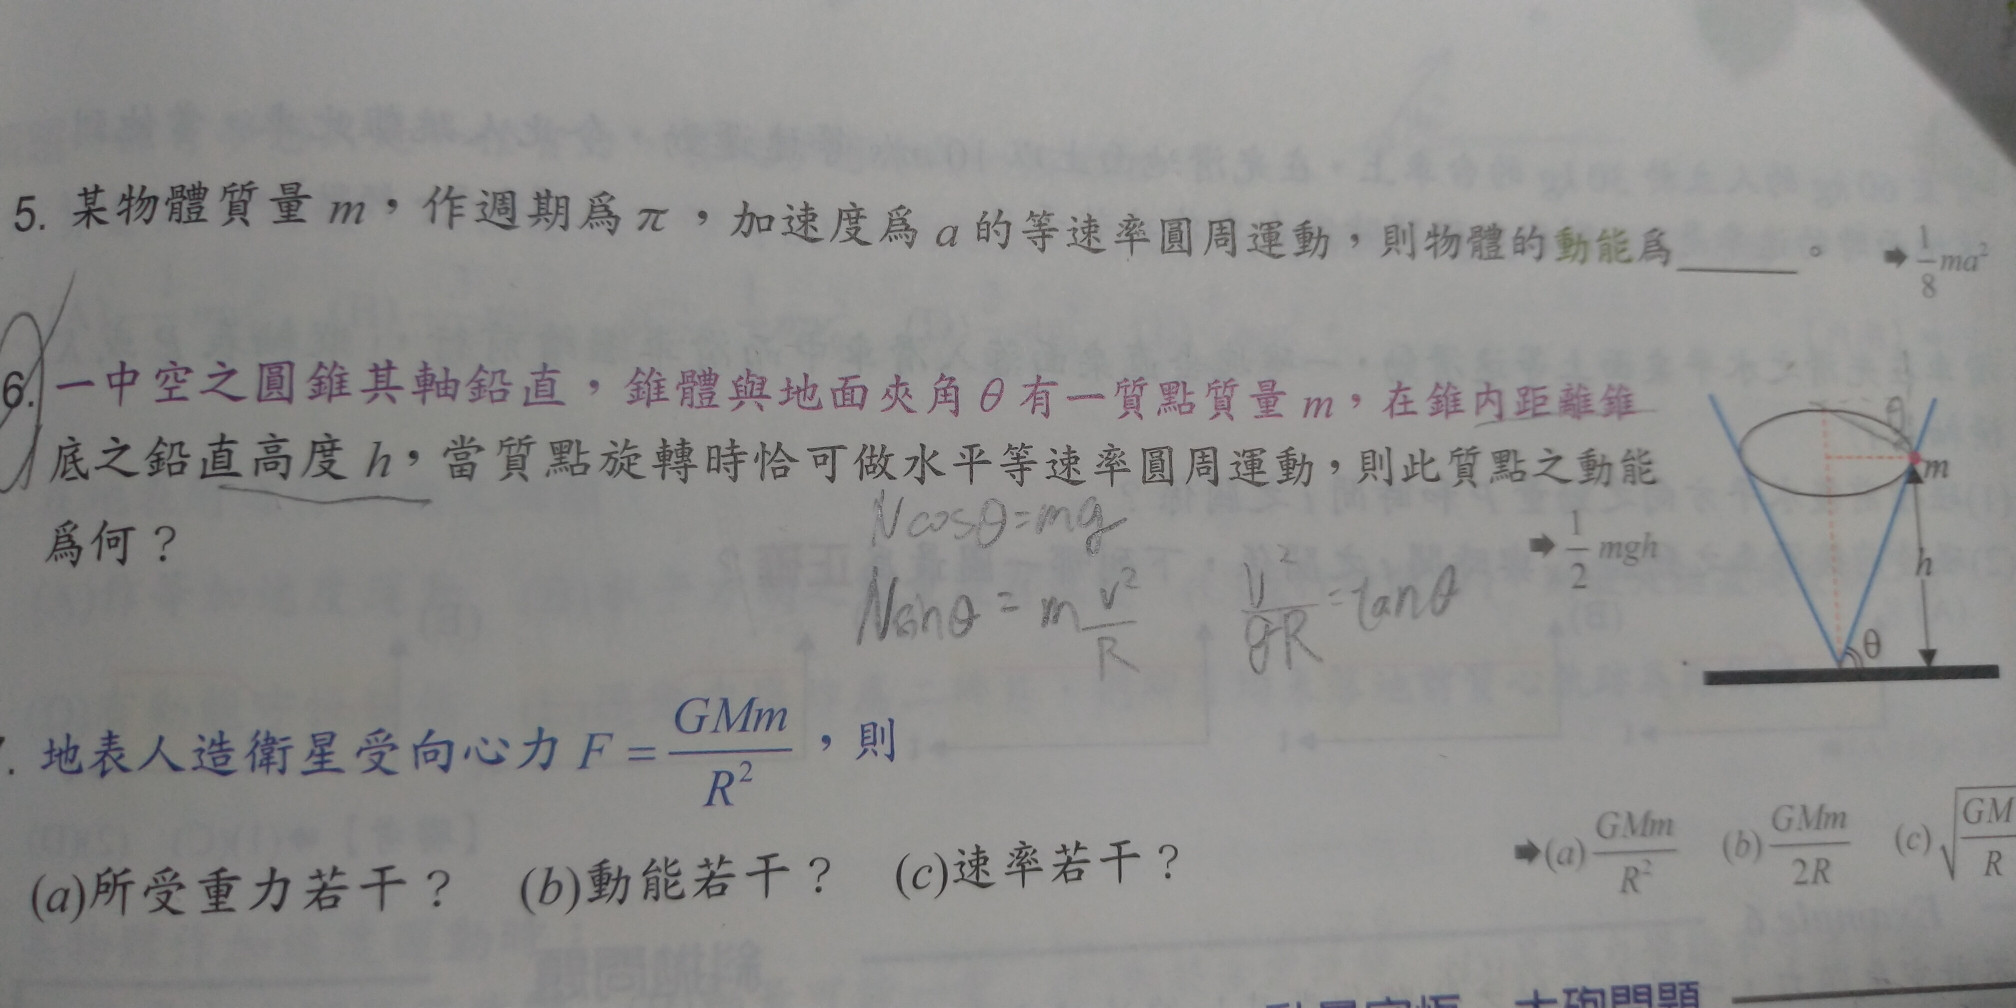 5. 某物體質量 m，作週期爲 π，加速度爲 a 的等速率圓周運動，則物體的動能爲______。 ➡ 1/8 ma²
6. 一中空之圓錐其軸鉛直，錐體與地面夾角 θ 有一質點質量 m，在錐內距離錐
底之鉛直高度 h，當質點旋轉時恰可做水平等速率圓周運動，則此質點之動能
爲何？
➡ 1/2 mgh
N cosθ = mg
N sinθ = m v²/R
v²/gR = tanθ
θ
m
h
θ
. 地表人造衛星受向心力 F = GMm/R²，則
(a)所受重力若干？ (b)動能若干？ (c)速率若干？
➡(a) GMm/R² (b) GMm/2R (c) √GM/R